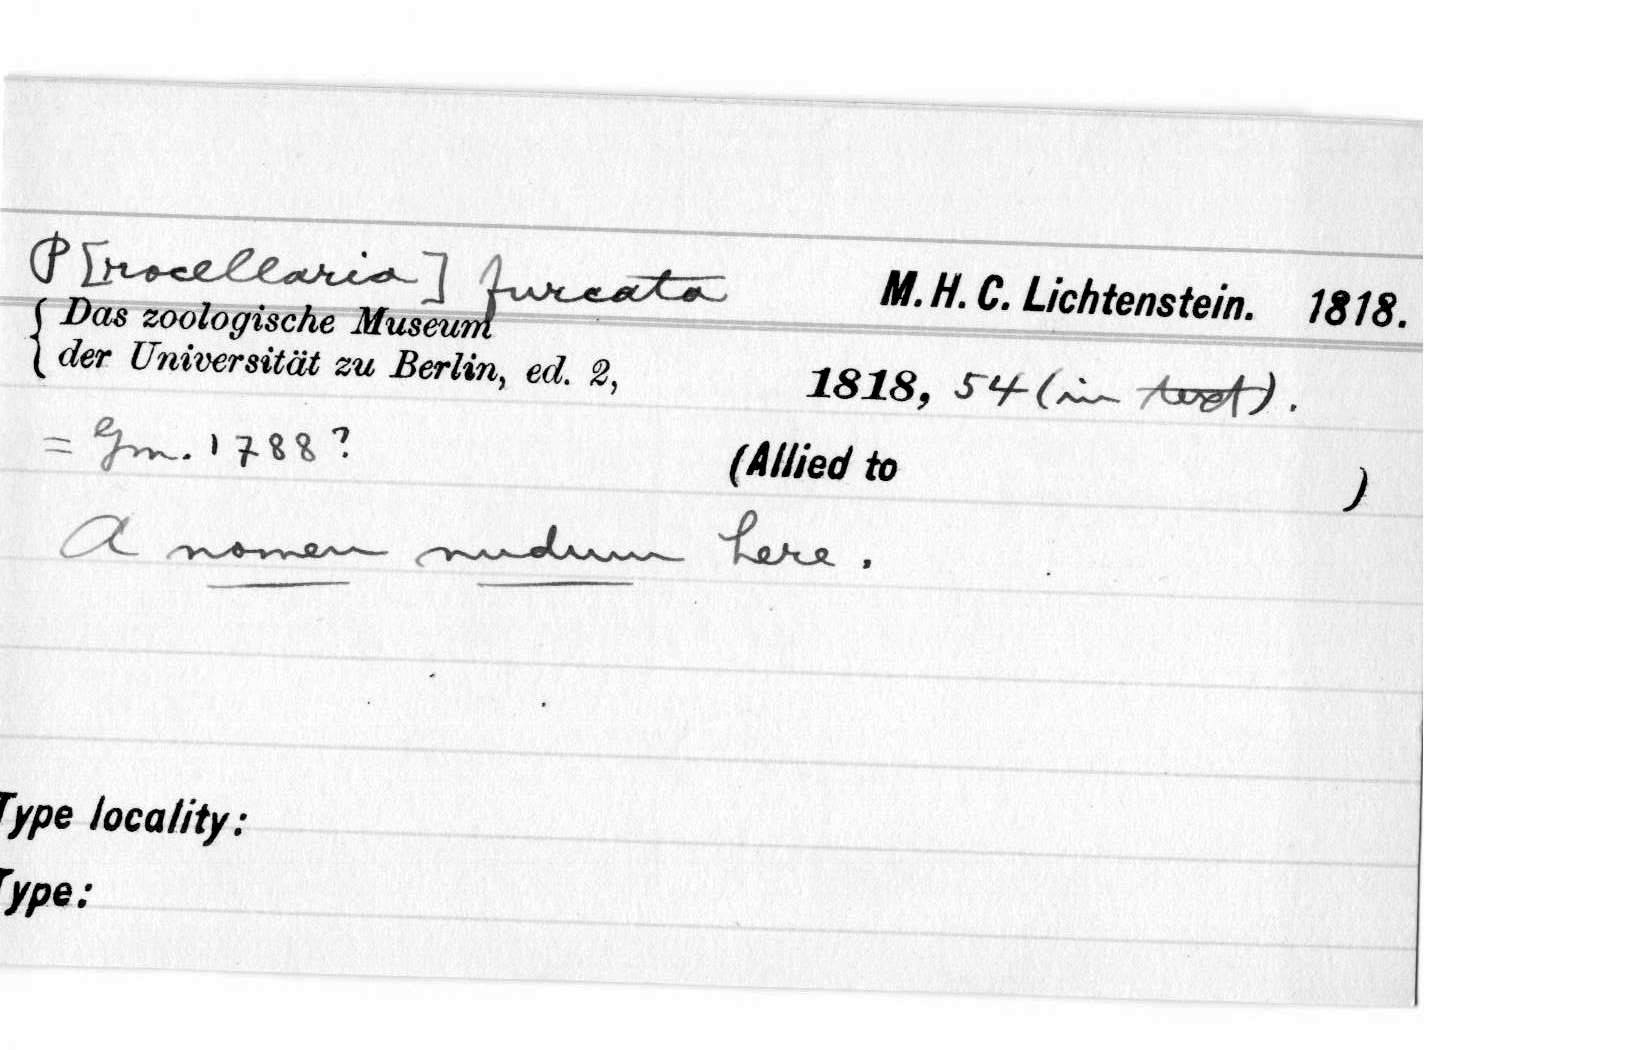 P[rocellaria] furcata M. H. C. Lichtenstein. 1818.
Das zoologische Museum
der Universität zu Berlin, ed. 2, 1818, 54 (in text).
= Gm. 1788? (Allied to )
A nomen nudum here.
Type locality:
Type: